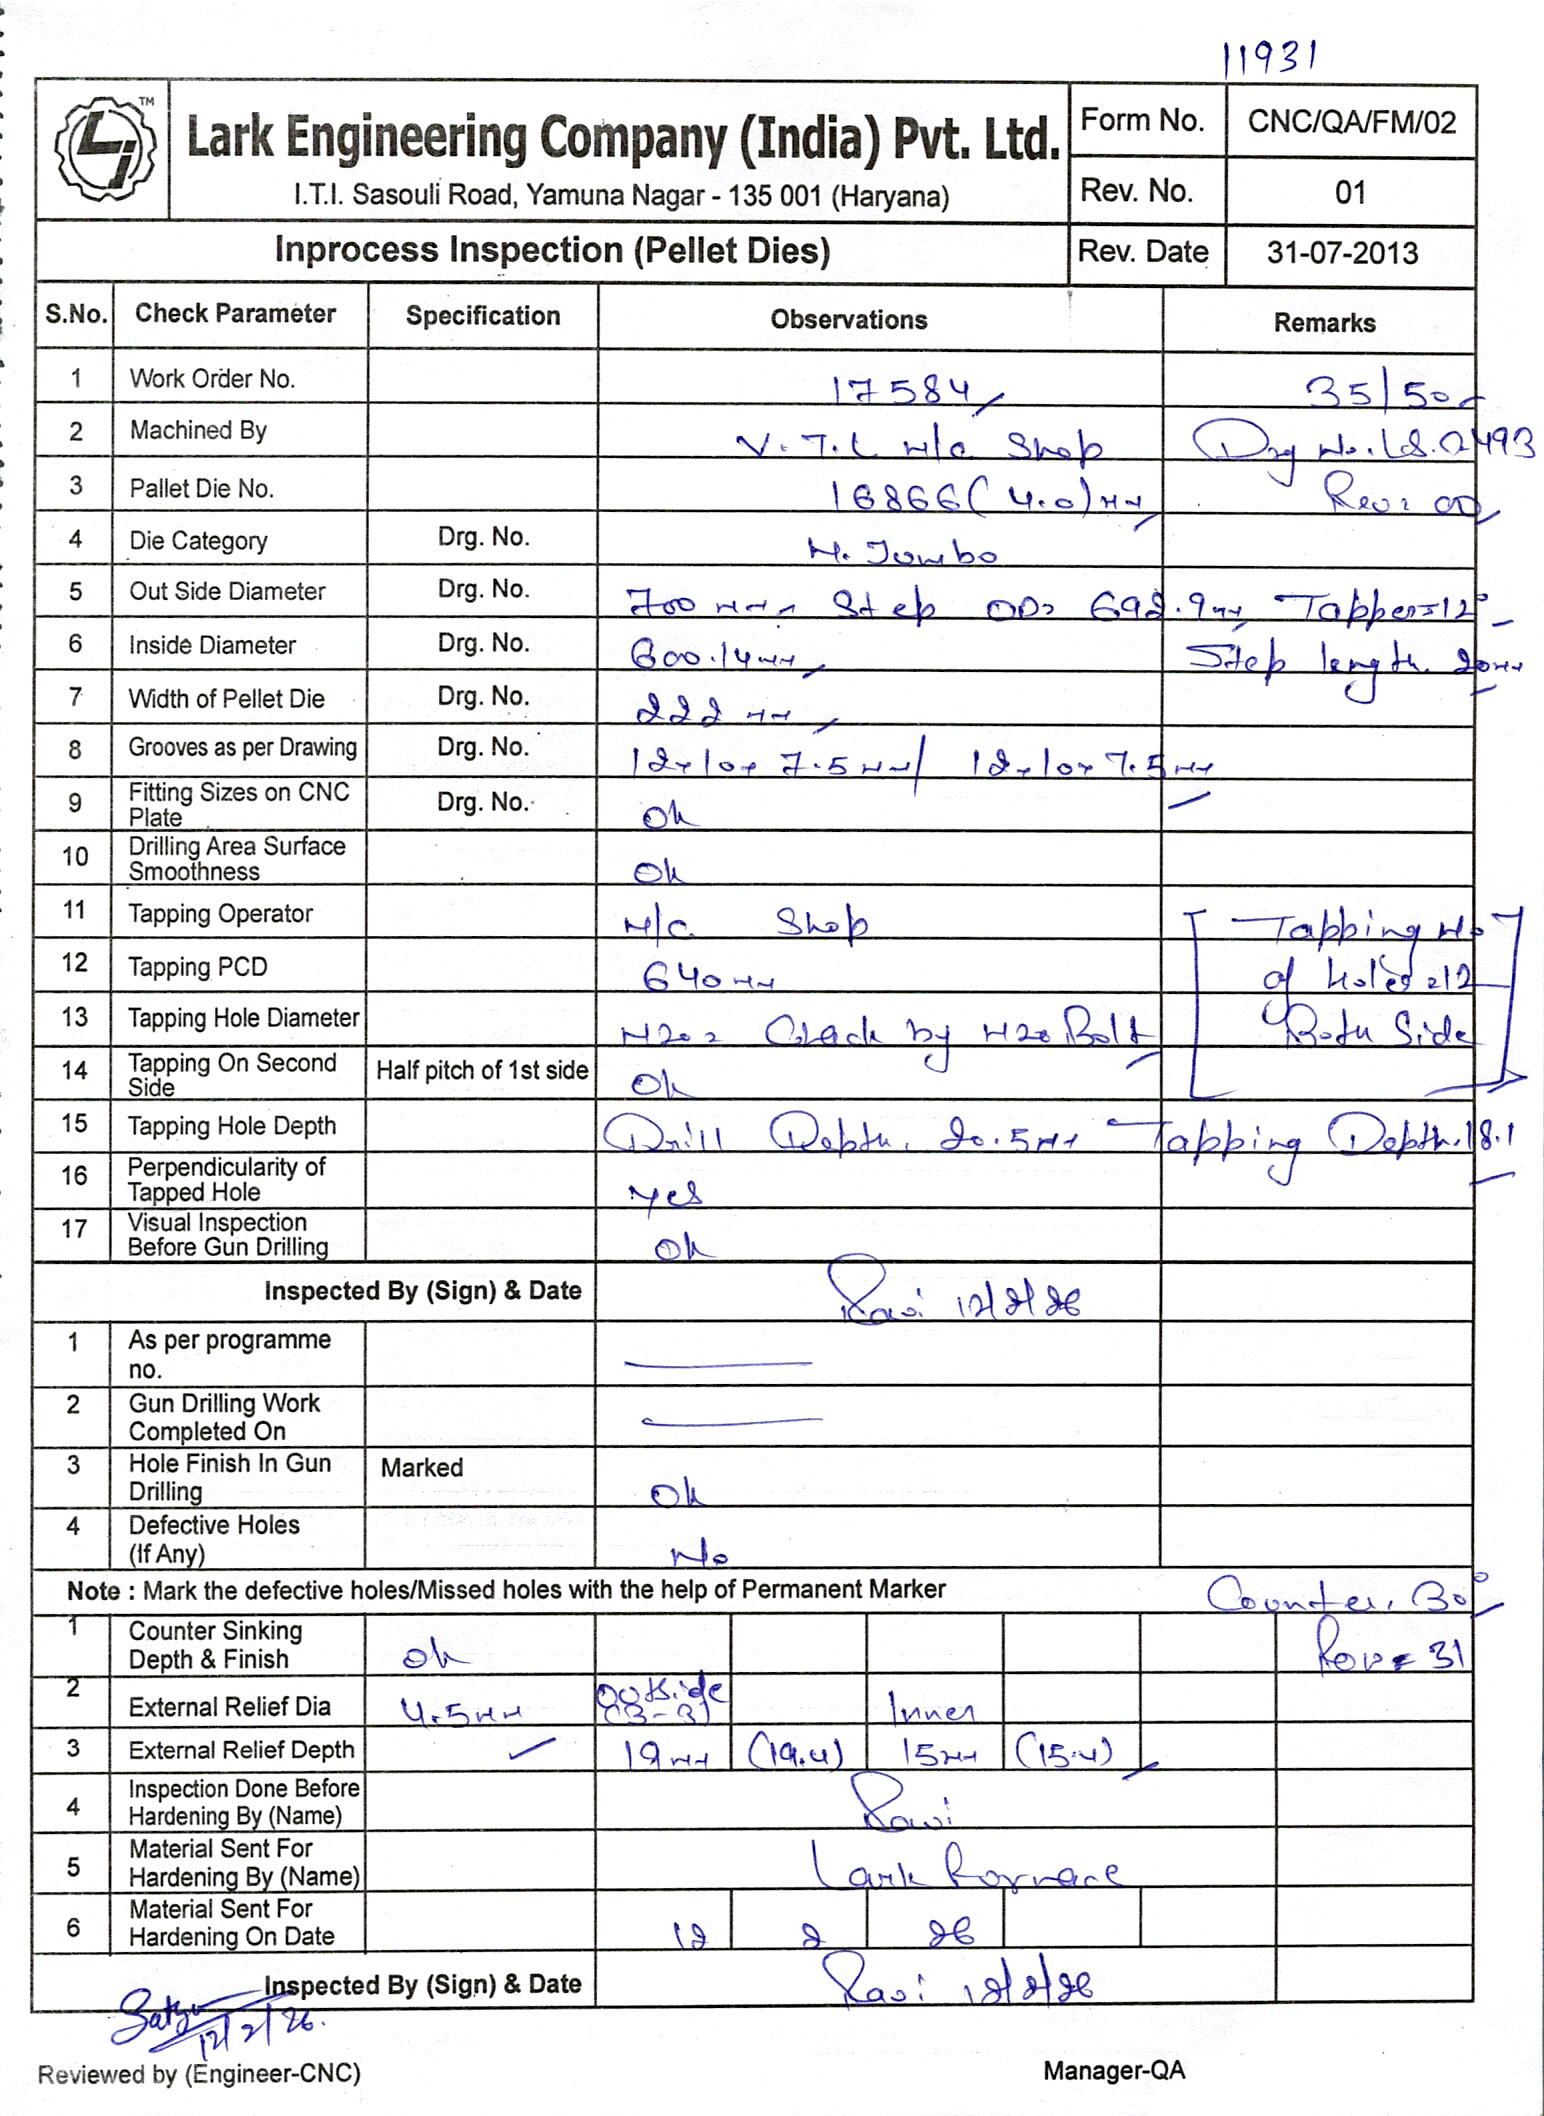 11931
TM
Lark Engineering Company (India) Pvt. Ltd.
I.T.I. Sasouli Road, Yamuna Nagar - 135 001 (Haryana)
Form No. CNC/QA/FM/02
Rev. No. 01
Inprocess Inspection (Pellet Dies) Rev. Date 31-07-2013
S.No. Check Parameter Specification Observations Remarks
1 Work Order No. 17584 35/50
2 Machined By V.T.L M/c Shop Drg No. LS.2493
3 Pallet Die No. 16866 (4.0) mm Rev: 00
4 Die Category Drg. No. M. Jumbo
5 Out Side Diameter Drg. No. 700 mm, Step OD= 698.9mm, Tapper=12°
6 Inside Diameter Drg. No. 600.14mm Step length. 20mm
7 Width of Pellet Die Drg. No. 222 mm
8 Grooves as per Drawing Drg. No. 12x10x7.5mm/ 12x10x7.5mm
9 Fitting Sizes on CNC Plate Drg. No. Ok
10 Drilling Area Surface Smoothness Ok
11 Tapping Operator M/c Shop Tapping No
12 Tapping PCD 640mm of holes=12
13 Tapping Hole Diameter M20= Check by M20 Bolt Both Side
14 Tapping On Second Side Half pitch of 1st side Ok
15 Tapping Hole Depth Drill Depth. 20.5mm Tapping Depth.18.1
16 Perpendicularity of Tapped Hole Yes
17 Visual Inspection Before Gun Drilling Ok
Inspected By (Sign) & Date Ravi 12/2/26
1 As per programme no.
2 Gun Drilling Work Completed On
3 Hole Finish In Gun Drilling Marked Ok
4 Defective Holes (If Any) No
Note : Mark the defective holes/Missed holes with the help of Permanent Marker Counter. 30°
1 Counter Sinking Depth & Finish Ok Row = 31
2 External Relief Dia 4.5mm Outside (3-3) Inner
3 External Relief Depth 19mm (19.4) 15mm (15.4)
4 Inspection Done Before Hardening By (Name) Ravi
5 Material Sent For Hardening By (Name) Lark Fornace
6 Material Sent For Hardening On Date 12 2 26
Inspected By (Sign) & Date Ravi 12/2/26
12/2/26.
Reviewed by (Engineer-CNC) Manager-QA